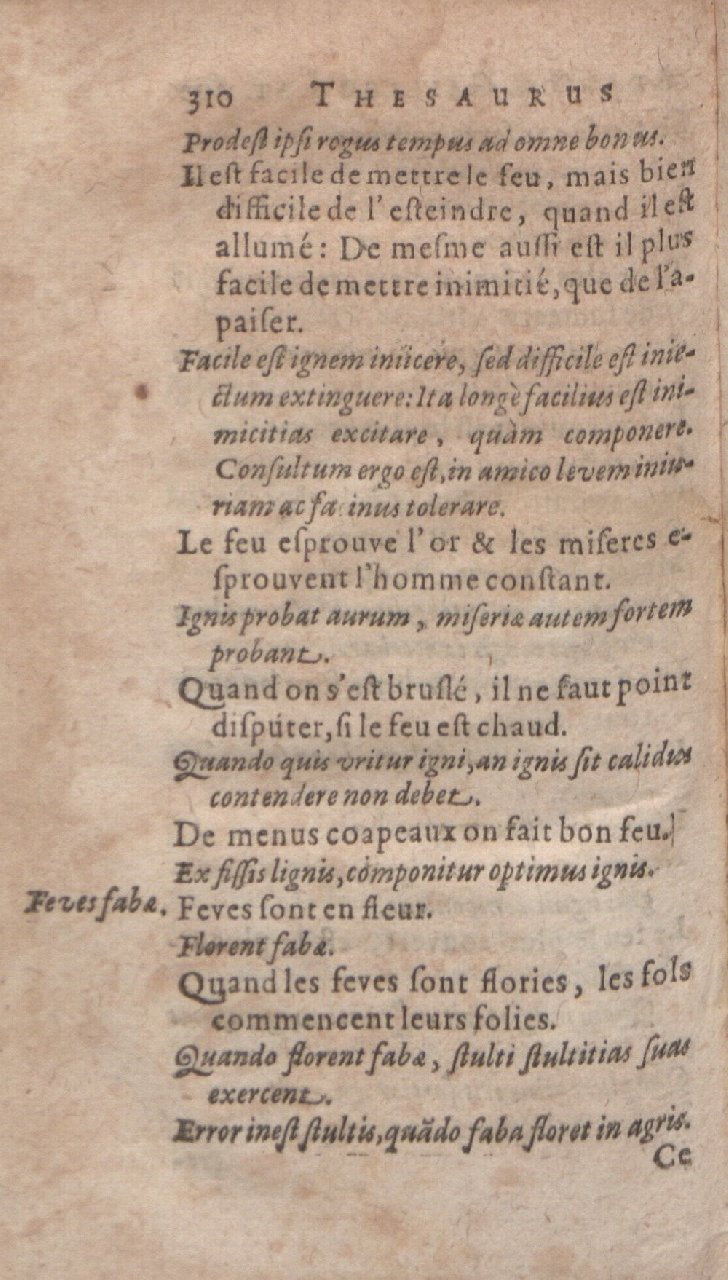 310 THESAURUS
Prodeſt ipſi rogus tempus ad omne bonus.
Il eſt facile de mettre le feu, mais bien
difficile de l'eſteindre, quand il eſt
allumé: De meſme auſſi eſt il plus
facile de mettre inimitié, que de l'a-
paiſer.
Facile eſt ignem iniicere, ſed difficile eſt inie-
ctum extinguere: Ita longè facilius eſt ini-
micitias excitare, quàm componere.
Conſultum ergo eſt, in amico levem iniu-
riam ac facinus tolerare.
Le feu eſprouve l'or & les miſeres e-
ſprouvent l'homme conſtant.
Ignis probat aurum, miſeriæ autem fortem
probant.
Quand on s'eſt bruſlé, il ne faut point
diſputer, ſi le feu eſt chaud.
Quando quis vritur igni, an ignis ſit calidus
contendere non debet.
De menus coapeaux on fait bon feu.
Ex fiſſis lignis, componitur optimus ignis.
Feves fabæ. Feves ſont en fleur.
Florent fabæ.
Quand les feves ſont flories, les fols
commencent leurs folies.
Quando florent fabæ, ſtulti ſtultitias ſuas
exercent.
Error ineſt ſtultis, quãdo faba floret in agris.
Ce